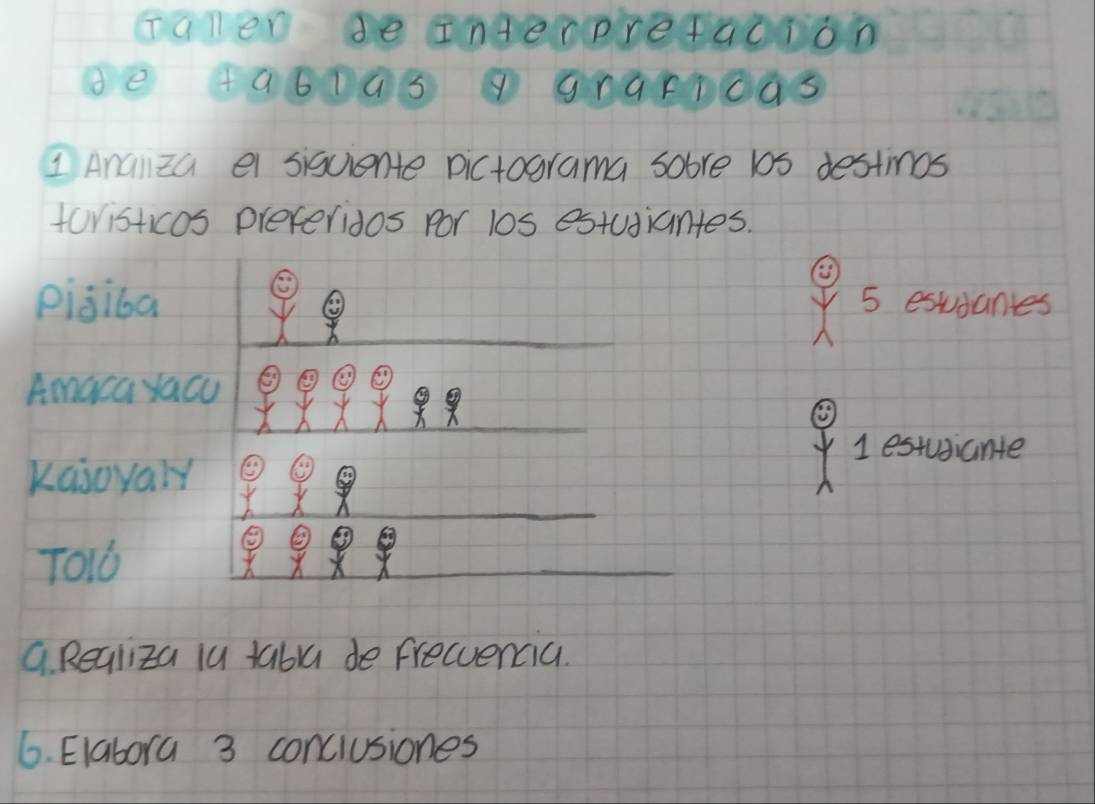 Taller de Interpretación
de tablas y graficas
1 Analiza el siguiente pictograma sobre los destinos
turisticos preferidos por los estudiantes.
Pijiba
5 estudantes
Amacayacu
1 estudiante
Kajuyaly
Tolú
a. Realiza la tabla de frecuencia.
b. Elabora 3 conclusiones